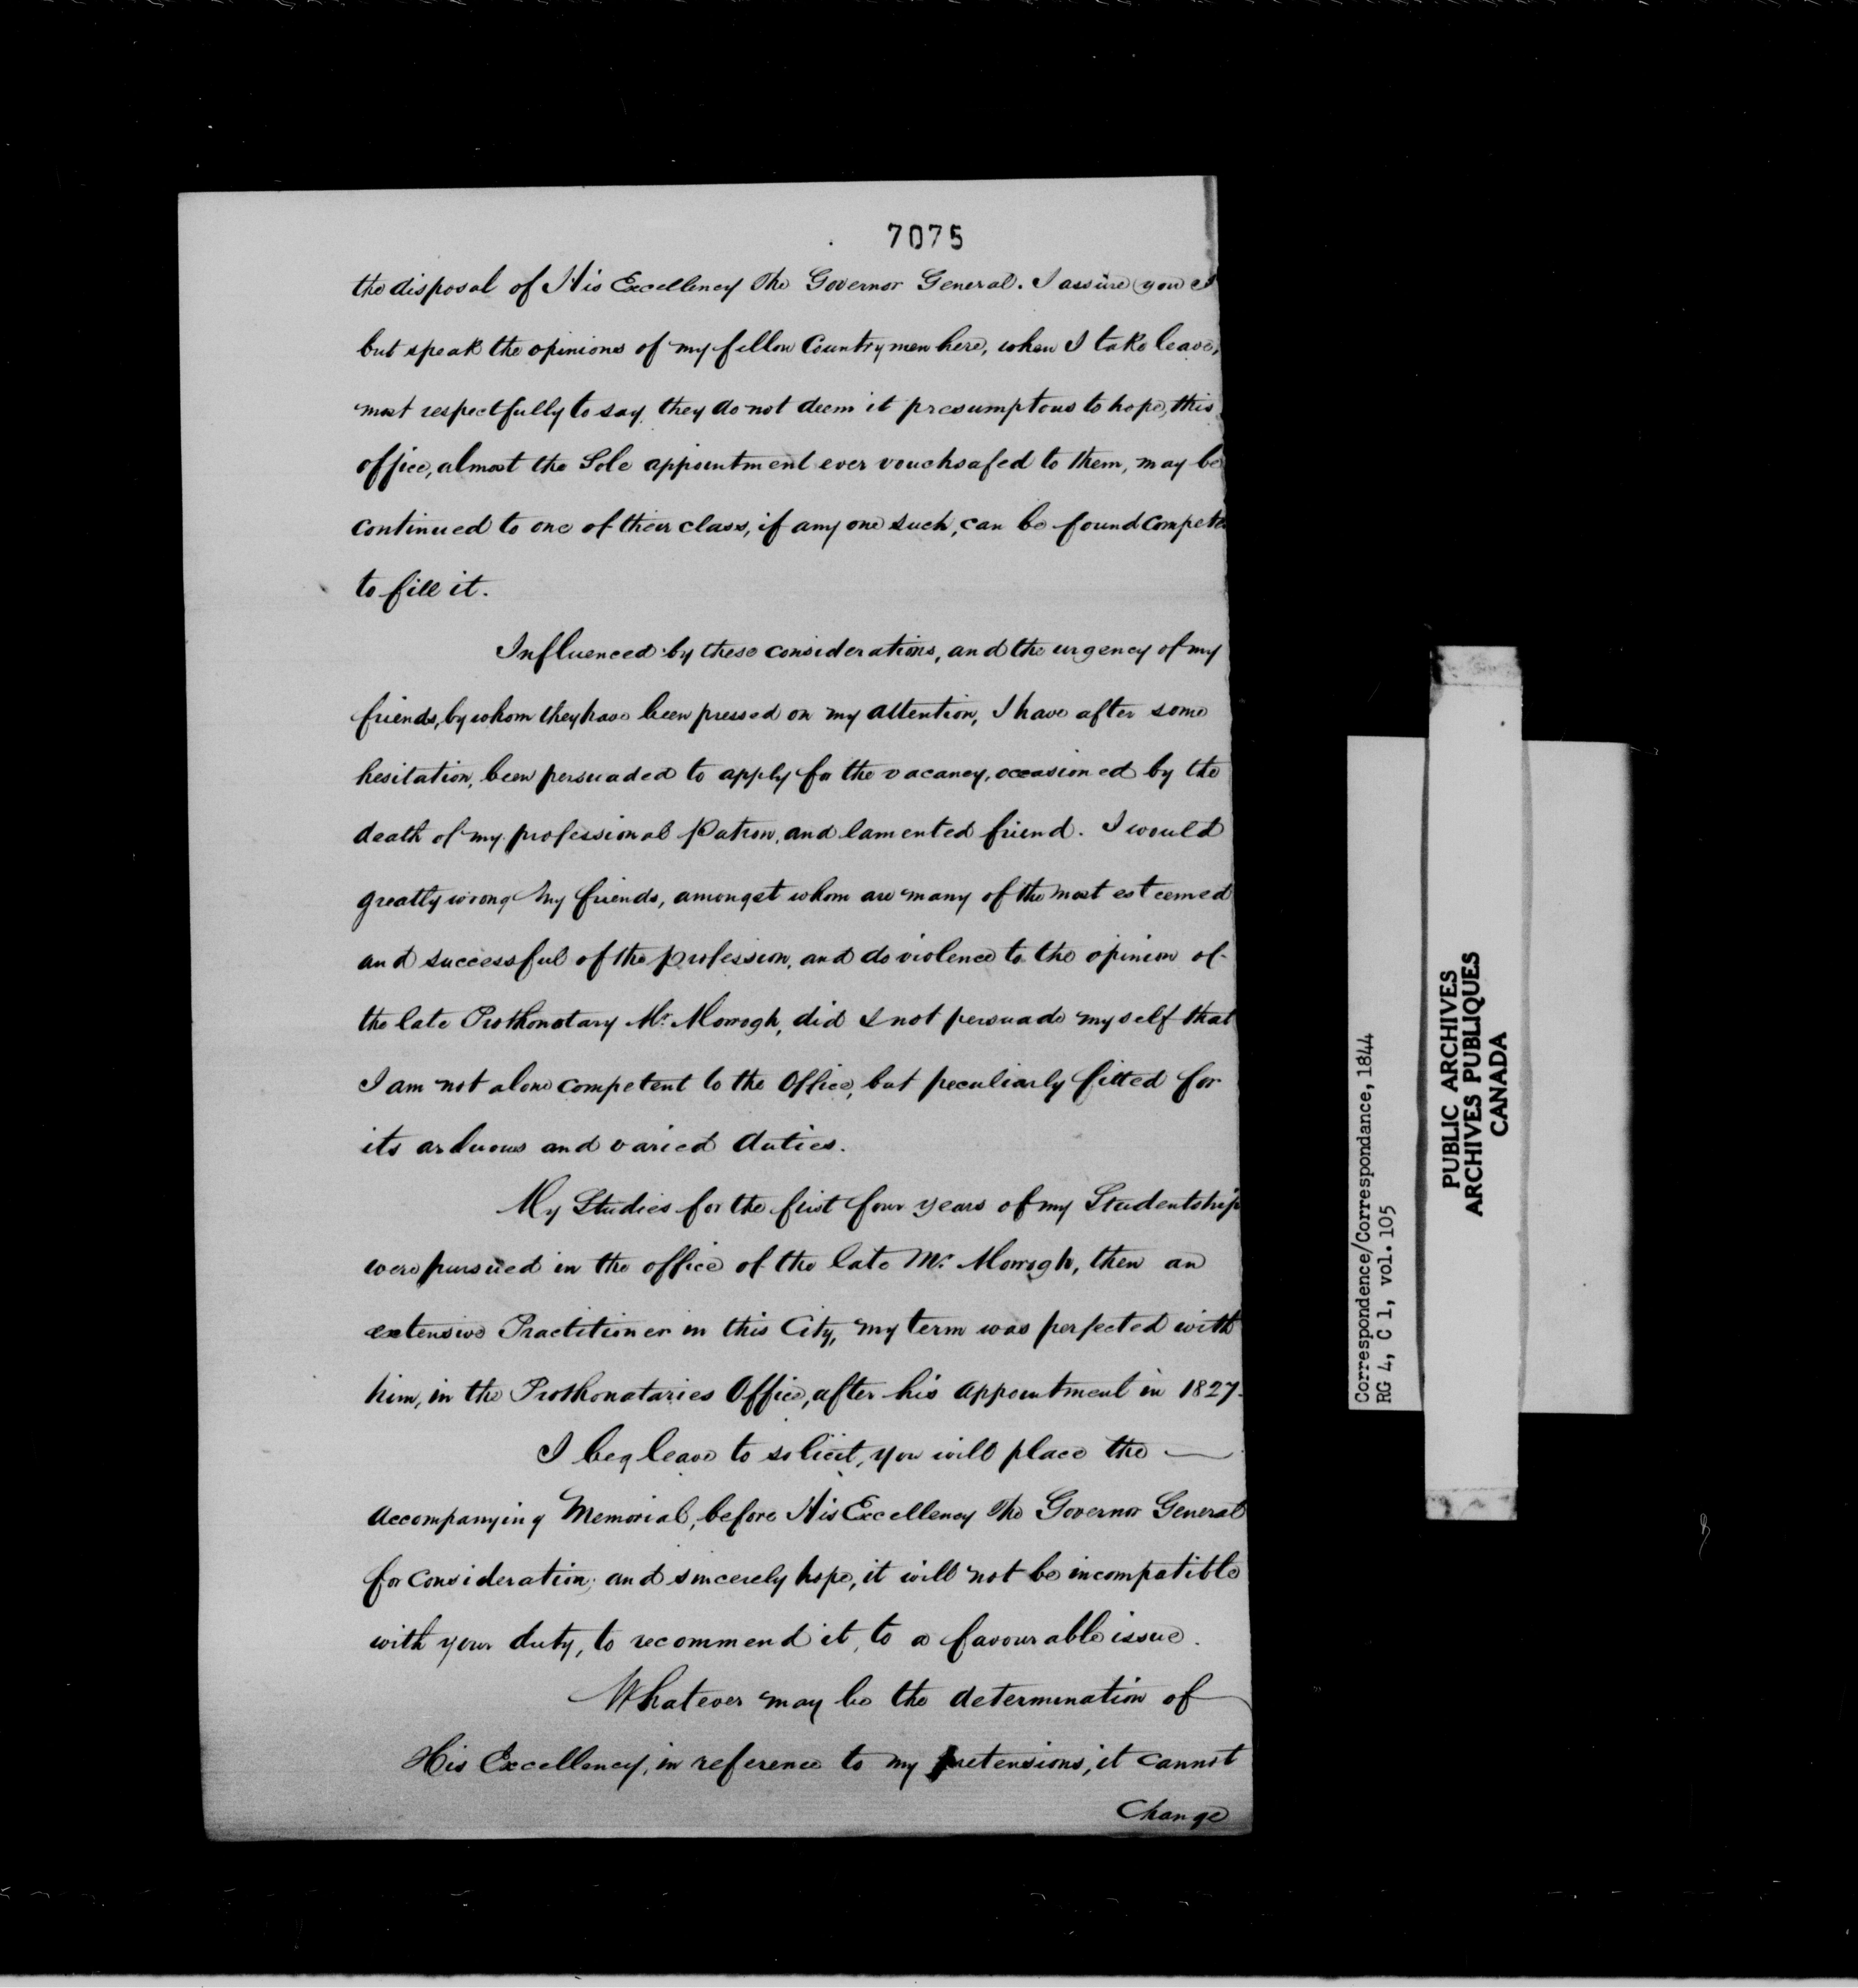 7075
the disposal of His Excellency the Governor General. I assure you I
but speak the opinions of my fellow Countrymen here, when I take leave,
most respectfully to say, they do not deem it presumptous to hope, this
office, almost the Sole appointment ever vouchsafed to them, may be
continued to one of their class, if any one such, can be found compete
to fill it.
Influenced by these considerations, and the urgency of my
friends, by whom they have been pressed on my attention, I have after some
hesitation, been persuaded to apply for the vacancy, occasioned by the
death of my professional Patron, and lamented friend. I would
greatly wrong my friends, amongst whom are many of the most esteemed
and successful of the profession, and do violence to the opinion of
the late Prothonotary Mr. Morrogh, did I not persuade myself that
I am not alone competent to the Office, but peculiarly fitted for
its arduous and varied duties.
My Studies for the first four years of my Studentship
were pursued in the office of the late Mr. Morrogh, then an
extensive Practitioner in this City, my term was perfected with
him, in the Prothonotaries Office, after his appointment in 1827.
I beg leave to solicit, you will place the —
accompanying Memorial, before His Excellency the Governor General
for consideration; and sincerely hope, it will not be incompatible
with your duty, to recommend it, to a favourable issue.
Whatever may be the determination of
His Excellency, in reference to my pretensions, it cannot
Change
Correspondence/Correspondance, 1844
RG 4, C 1, vol. 105
PUBLIC ARCHIVES
ARCHIVES PUBLIQUES
CANADA